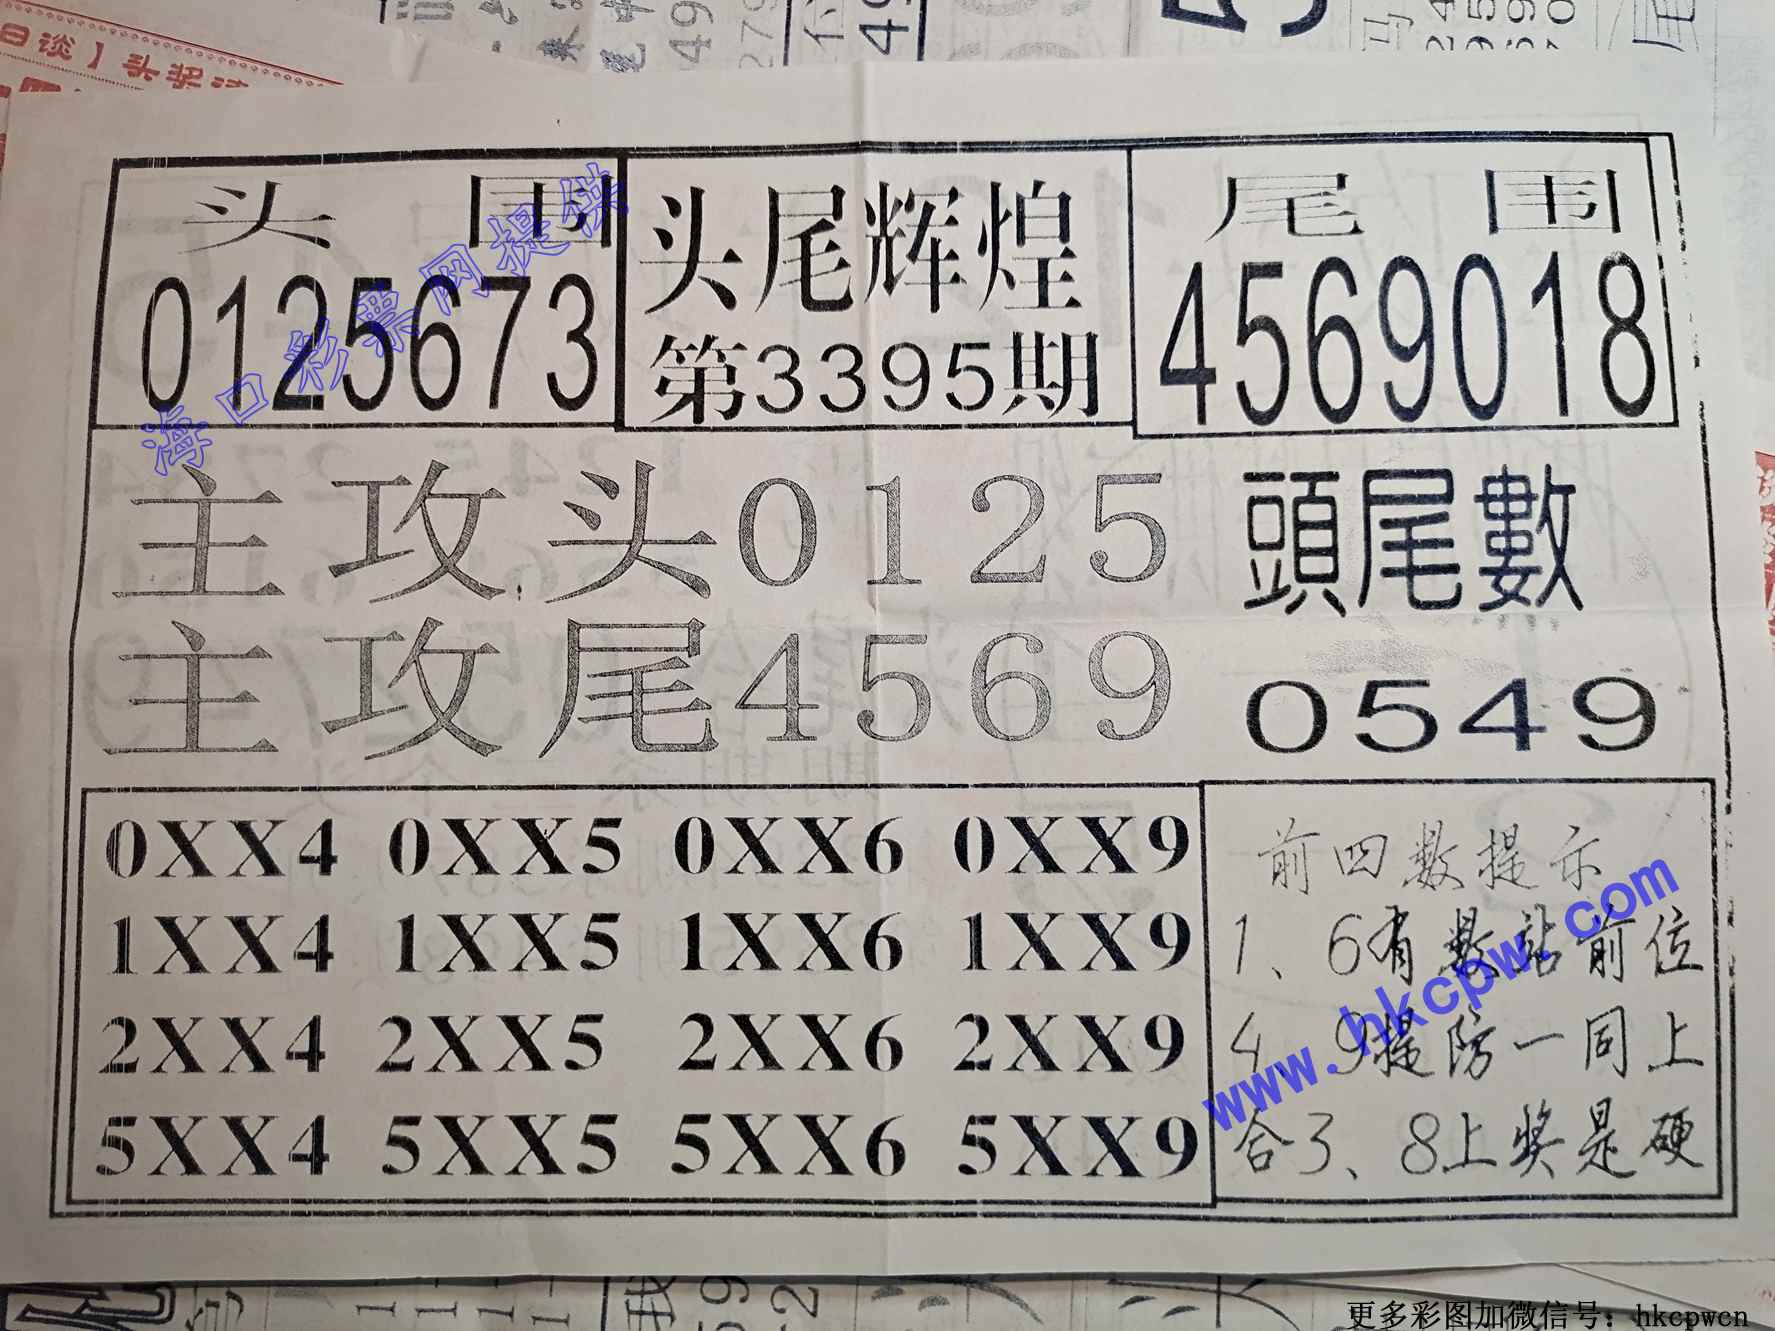 日谈】头奖
头围
0125673
头尾辉煌
第3395期
尾围
4569018
海口彩票网提供
主攻头0125
主攻尾4569
頭尾數
0549
0XX4 0XX5 0XX6 0XX9
1XX4 1XX5 1XX6 1XX9
2XX4 2XX5 2XX6 2XX9
5XX4 5XX5 5XX6 5XX9
前四数提示
1、6有数站前位
4、9提防一同上
合3、8上奖是硬
www.hkcpw.com
更多彩图加微信号：hkcpwcn